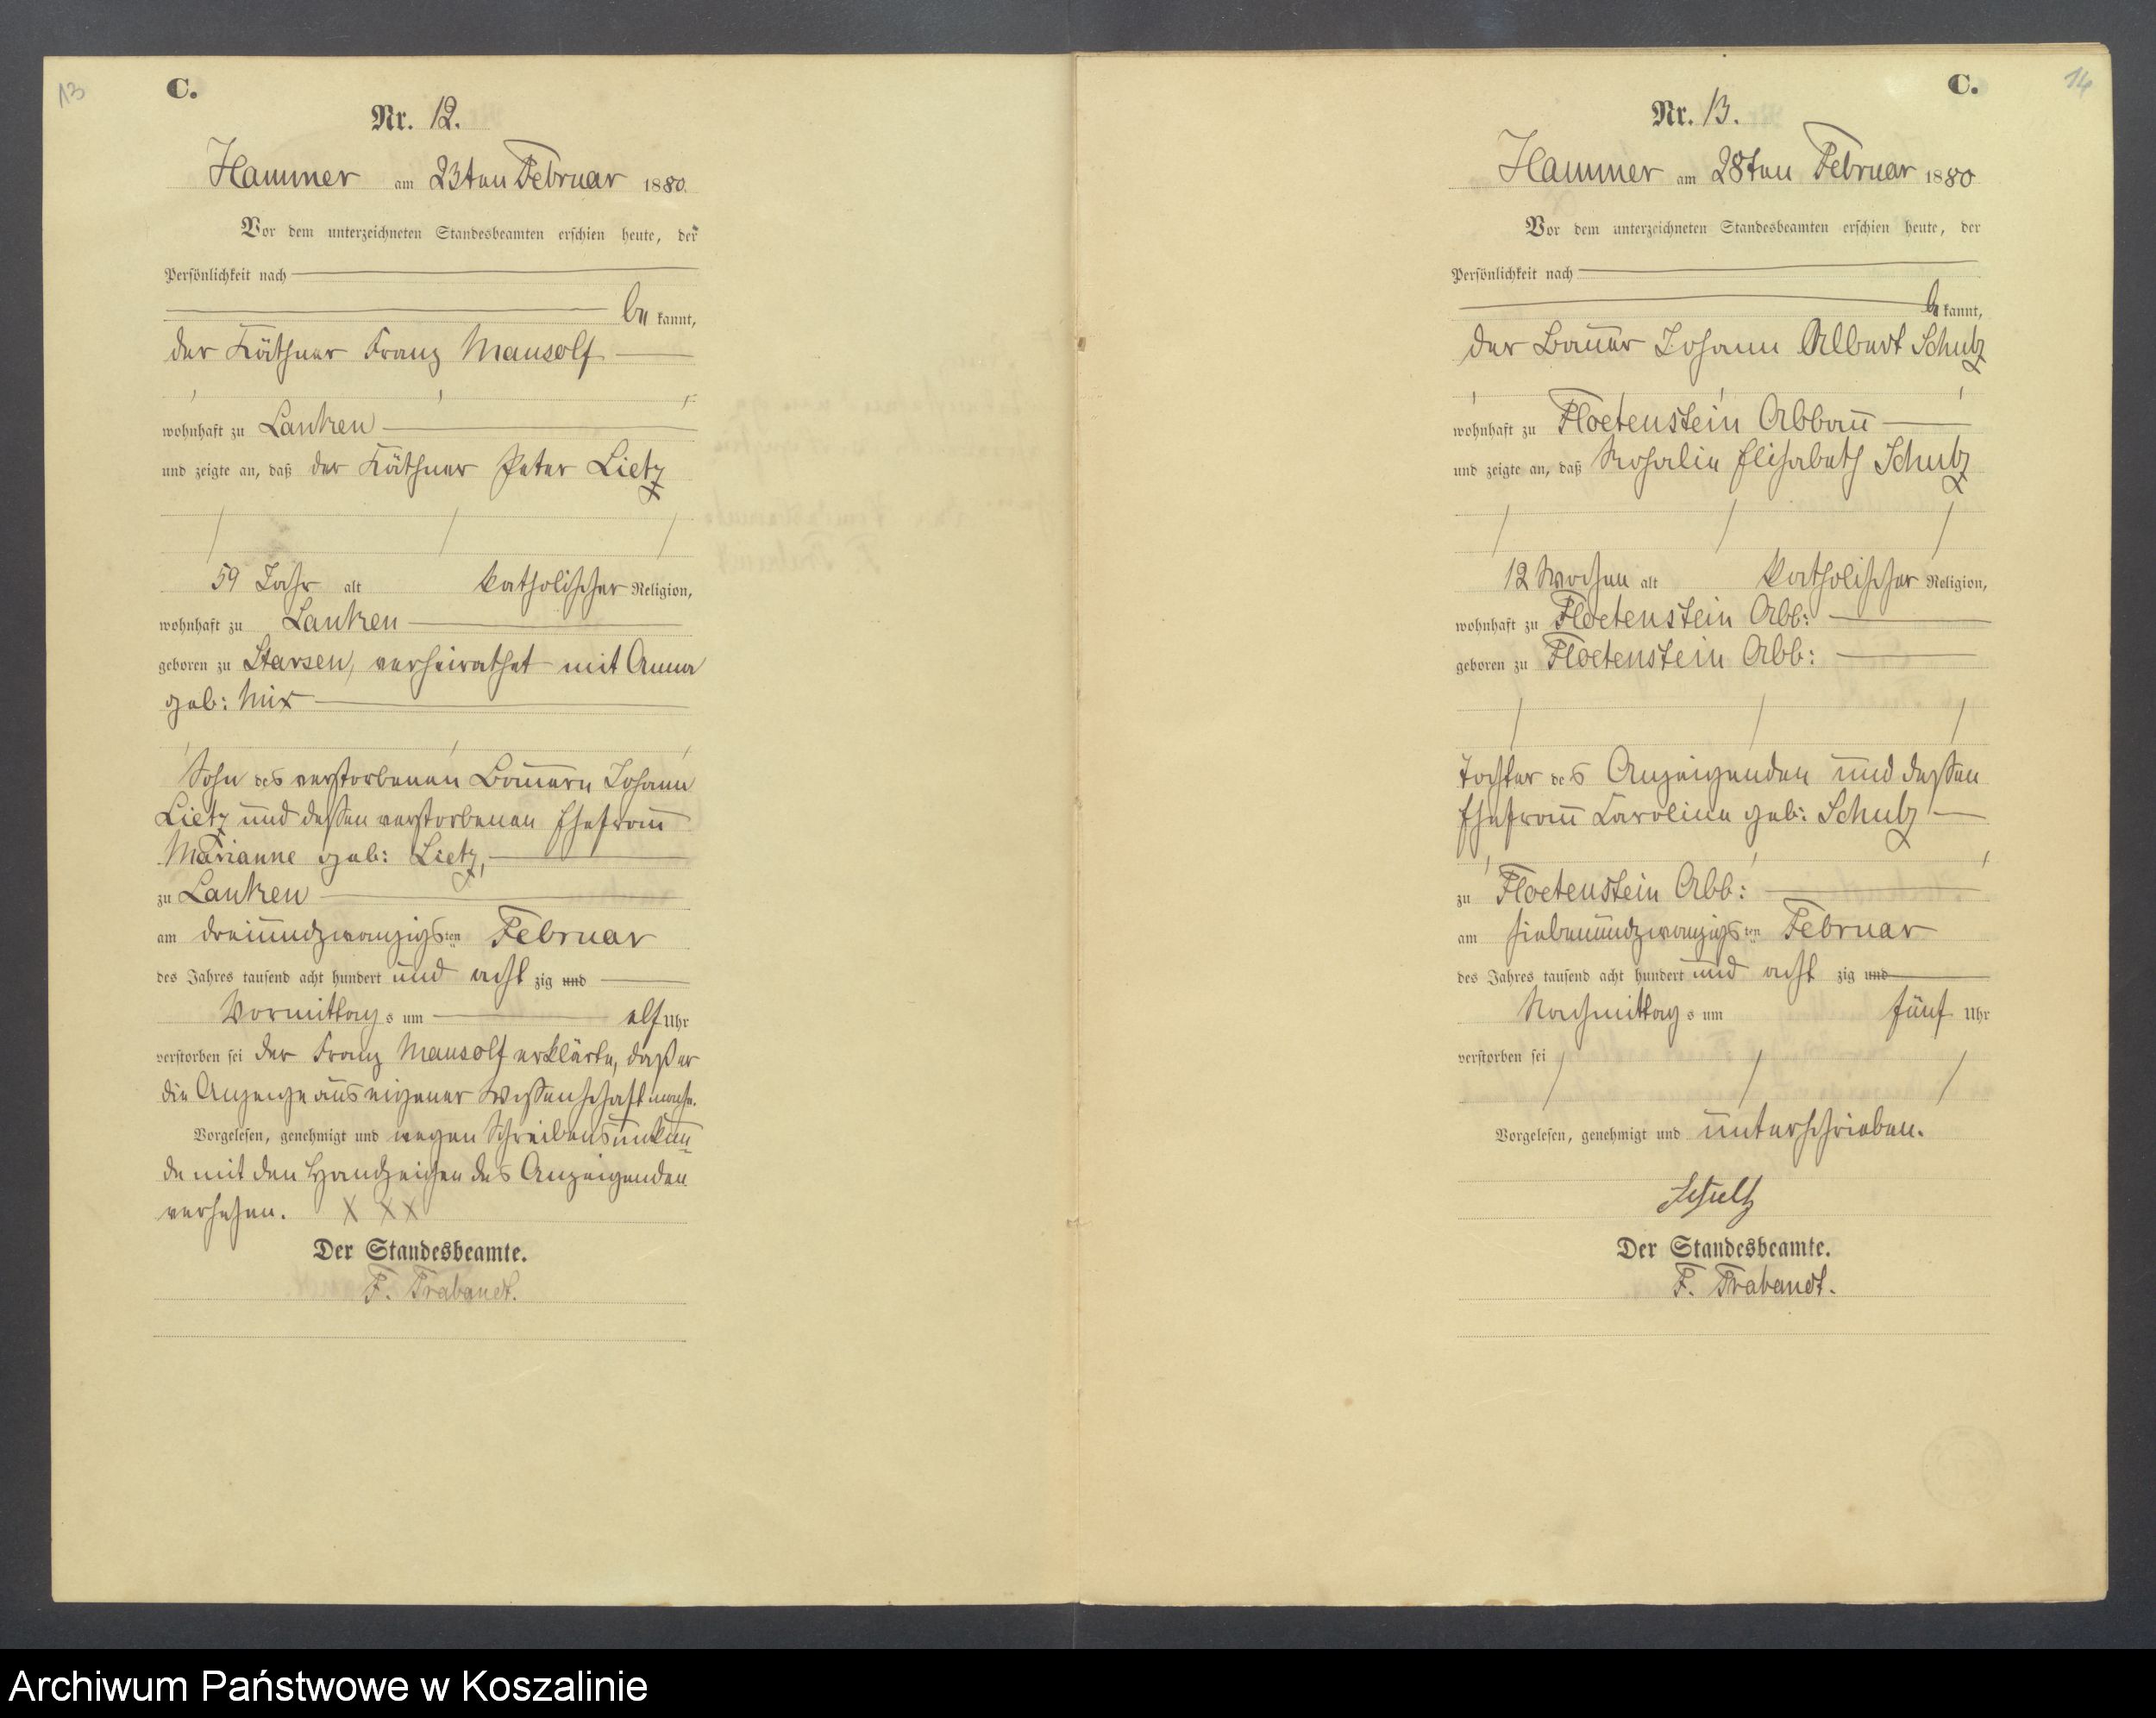 13
C.
Nr. 12.
Hammer am 23ten Februar 1880.
Vor dem unterzeichneten Standesbeamten erschien heute, der
Persönlichkeit nach
be kannt,
der Käthner Franz Mausolf
wohnhaft zu Lanken
und zeigte an, daß der Käthner Peter Lietz
59 Jahr alt katholischer Religion,
wohnhaft zu Lanken
geboren zu Starsen, verheirathet mit Anna
geb: Mix
Sohn des verstorbenen Bauern Johann
Lietz und dessen verstorbenen Ehefrau
Marianne geb: Lietz,
zu Lanken
am dreiundzwanzigsten Februar
des Jahres tausend acht hundert und acht zig und
Vormittags um elf Uhr
verstorben sei der Franz Mausolf erklärte, daß er
die Anzeige aus eigener Wissenschaft mache.
Vorgelesen, genehmigt und wegen Schreibensunkun
de mit den Handzeichen des Anzeigenden
versehen. X X X
Der Standesbeamte.
F. Trabandt.
14
C.
Nr. 13.
Hammer am 28ten Februar 1880
Vor dem unterzeichneten Standesbeamten erschien heute, der
Persönlichkeit nach
be kannt,
der Bauer Johann Albert Schulz
wohnhaft zu Floetenstein Abbau
und zeigte an, daß Rosalie Elisabeth Schulz
12 Wochen alt katholischer Religion,
wohnhaft zu Floetenstein Abb:
geboren zu Floetenstein Abb:
Tochter des Anzeigenden und dessen
Ehefrau Caroline geb: Schulz
zu Floetenstein Abb:
am siebenundzwanzigsten Februar
des Jahres tausend acht hundert und acht zig und
Nachmittags um fünf Uhr
verstorben sei
Vorgelesen, genehmigt und unterschrieben.
Schultz
Der Standesbeamte.
F. Trabandt.
Archiwum Państwowe w Koszalinie